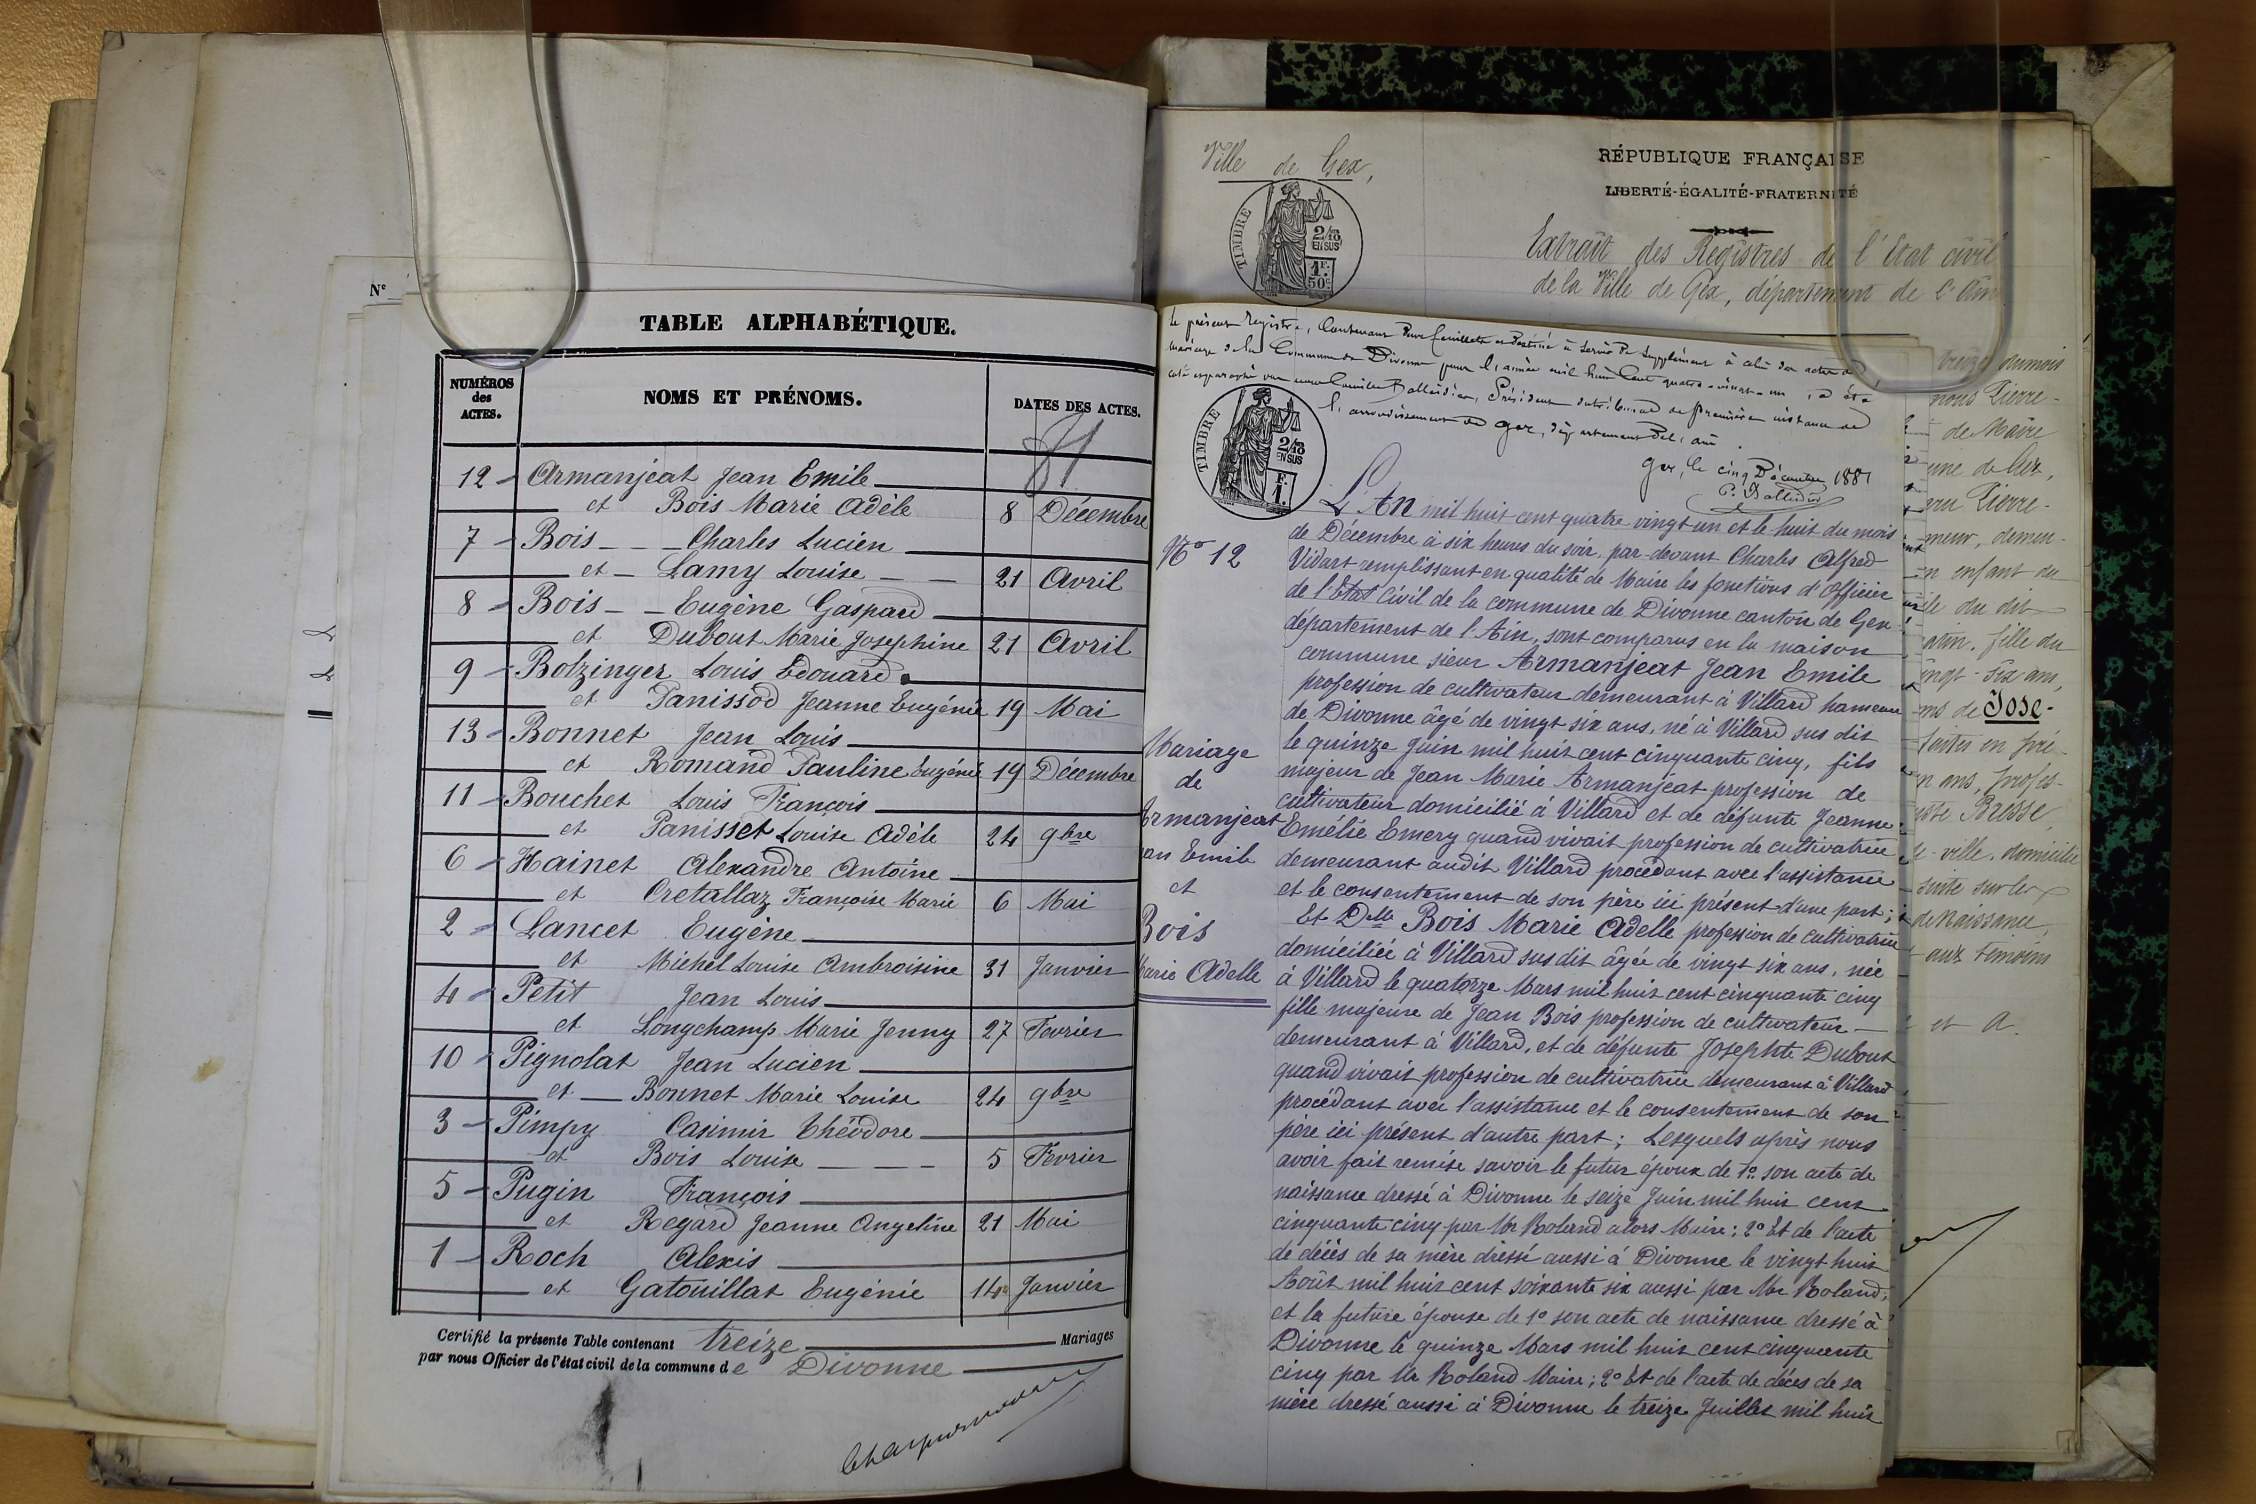 Nº
TABLE ALPHABÉTIQUE.
NUMÉROS des ACTES.
NOMS ET PRÉNOMS.
DATES DES ACTES.
81
12 Armanjeat Jean Emile
et Bois Marie Adèle 8 Décembre
7 Bois Charles Lucien
et Lamy Louise 21 Avril
8 Bois Eugène Gaspard
et Dubout Marie Josephine 21 Avril
9 Botzinger Louis Edouard
et Panissod Jeanne Eugénie 19 Mai
13 Bonnet Jean Louis
et Romand Pauline Eugénie 19 Décembre
11 Bouchet Louis François
et Panisset Louise Adèle 24 9bre
6 Hainet Alexandre Antoine
et Cretallaz Françoise Marie 6 Mai
2 Lancet Eugène
et Michel Louise Ambroisine 31 Janvier
4 Petit Jean Louis
et Longchamp Marie Jenny 27 Fevrier
10 Pignolat Jean Lucien
et Bonnet Marie Louise 24 9bre
3 Pimpy Casimir Théodore
et Bois Louise 5 Fevrier
5 Pugin François
et Regard Jeanne Angeline 21 Mai
1 Roch Alexis
et Gatouillat Eugénie 14 Janvier
Certifié la présente Table contenant treize Mariages
par nous Officier de l'état civil de la commune de Divonne
Ville de Gex,
RÉPUBLIQUE FRANÇAISE
LIBERTÉ-ÉGALITÉ-FRATERNITÉ
TIMBRE
2/10 EN SUS
1F. 50c
Extrait des Registres de l'Etat civil
de la Ville de Gex, département de l'Ain
Le présent registre, contenant deux feuillets et destiné à servir de supplément à celui des actes de
mariage de la Commune de Divonne pour l'année mil huit cent quatre-vingt-un, a été
coté et paraphé par nous Camille Balleidier, Président du tribunal de première instance de
l'arrondissement de Gex, département de l'Ain
Gex, le cinq Décembre 1881
TIMBRE
2/10 EN SUS
1F.
L'An mil huit cent quatre vingt un et le huit du mois
de Décembre à six heures du soir, par-devant Charles Alfred
Vidart remplissant en qualité de Maire les fonctions d'Officier
de l'Etat Civil de la commune de Divonne canton de Gex
département de l'Ain, sont comparus en la maison
commune sieur Armanjeat Jean Emile
profession de cultivateur demeurant à Villard hameau
de Divonne âgé de vingt six ans, né à Villard sus dit
le quinze Juin mil huit cent cinquante cinq, fils
majeur de Jean Marie Armanjeat profession de
cultivateur domicilié à Villard et de défunte Jeanne
Emélie Emery quand vivait profession de cultivatrice
demeurant audit Villard procédant avec l'assistance
et le consentement de son père ici présent d'une part;
Et Delle Bois Marie Adelle profession de cultivatrice
domiciliée à Villard sus dit âgée de vingt six ans, née
à Villard le quatorze Mars mil huit cent cinquante cinq
fille majeure de Jean Bois profession de cultivateur
demeurant à Villard, et de défunte Josephte Dubout
quand vivait profession de cultivatrice demeurant à Villard
procédant avec l'assistance et le consentement de son
père ici présent d'autre part; Lesquels après nous
avoir fait remise savoir le futur époux de 1º son acte de
naissance dressé à Divonne le seize Juin mil huit cent
cinquante cinq par Mr Roland alors Maire; 2º Et de l'acte
de décès de sa mère dressé aussi à Divonne le vingt huit
Août mil huit cent soixante six aussi par Mr Roland;
et la future épouse de 1º son acte de naissance dressé à
Divonne le quinze Mars mil huit cent cinquante
cinq par Mr Roland Maire; 2º Et de l'acte de décès de sa
mère dressé aussi à Divonne le treize Juillet mil huit
Nº 12
Mariage
de
Armanjeat
an Emile
et
Bois
Marie Adelle
treize du mois
nous Pierre-
de Maire
une de Gex,
Pierre-
meur, demeu-
n enfant du
ile du dit
fille du
ingt-six ans,
ms de Jose-
faites en pré-
n ans, profes-
Bresse,
ville, domicilié
suite sur les
de Naissance,
aux témoins
et a